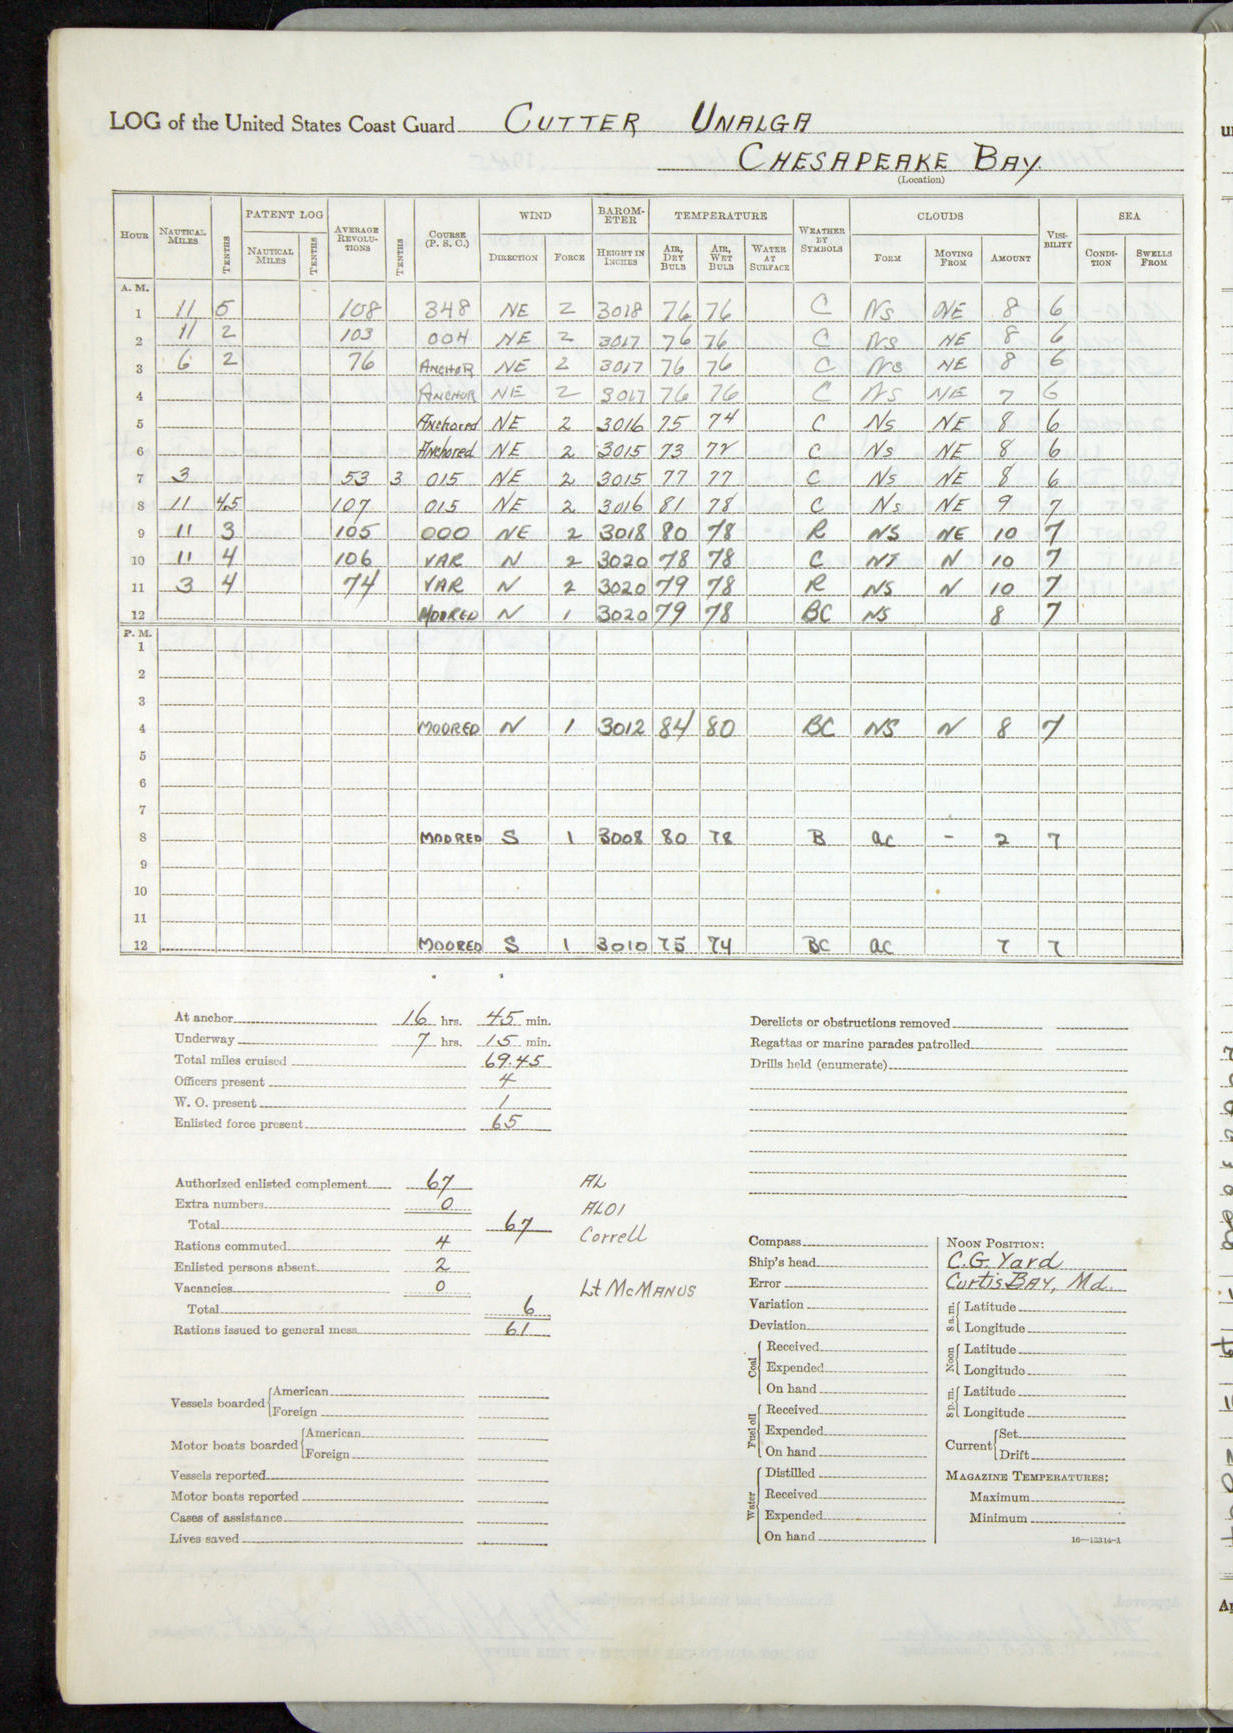 LOG of the United States Coast Guard CUTTER UNALGA
CHESAPEAKE BAY.
(Location)
HOUR NAUTICAL MILES TENTHS PATENT LOG NAUTICAL MILES TENTHS AVERAGE REVOLUTIONS TENTHS COURSE (P. S. C.) WIND DIRECTION FORCE BAROMETER HEIGHT IN INCHES TEMPERATURE AIR, DRY BULB AIR, WET BULB WATER AT SURFACE WEATHER BY SYMBOLS CLOUDS FORM MOVING FROM AMOUNT VISIBILITY SEA CONDITION SWELLS FROM
A. M.
1 11 5 108 348 NE 2 3018 76 76 C Ns NE 8 6
2 11 2 103 004 NE 2 3017 76 76 C NS NE 8 6
3 6 2 76 ANCHOR NE 2 3017 76 76 C Ns NE 8 6
4 ANCHOR NE 2 3017 76 76 C NS NE 7 6
5 Anchored NE 2 3016 75 74 C Ns NE 8 6
6 Anchored NE 2 3015 73 72 C Ns NE 8 6
7 3 53 3 015 NE 2 3015 77 77 C Ns NE 8 6
8 11 45 107 015 NE 2 3016 81 78 C Ns NE 9 7
9 11 3 105 000 NE 2 3018 80 78 R NS NE 10 7
10 11 4 106 VAR N 2 3020 78 78 C NS N 10 7
11 3 4 74 VAR N 2 3020 79 78 R NS N 10 7
12 MOORED N 1 3020 79 78 BC NS 8 7
P. M.
1
2
3
4 MOORED N 1 3012 84 80 BC NS N 8 7
5
6
7
8 MOORED S 1 3008 80 78 B ac - 2 7
9
10
11
12 MOORED S 1 3010 75 74 BC ac 7 7
At anchor 16 hrs. 45 min.
Underway 7 hrs. 15 min.
Total miles cruised 69.45
Officers present 4
W. O. present 1
Enlisted force present 65
Authorized enlisted complement 67 AL
Extra numbers 0 ALOI
Total 67 Correll
Rations commuted 4
Enlisted persons absent 2
Vacancies 0 Lt McMANUS
Total 6
Rations issued to general mess 61
Vessels boarded American
Foreign
Motor boats boarded American
Foreign
Vessels reported
Motor boats reported
Cases of assistance
Lives saved
Derelicts or obstructions removed
Regattas or marine parades patrolled
Drills held (enumerate)
Compass
Ship's head
Error
Variation
Deviation
Coal Received
Expended
On hand
Fuel oil Received
Expended
On hand
Water Distilled
Received
Expended
On hand
NOON POSITION:
C.G. Yard
Curtis BAY, Md.
8 a.m. Latitude
Longitude
Noon Latitude
Longitude
8 p.m. Latitude
Longitude
Current Set
Drift
MAGAZINE TEMPERATURES:
Maximum
Minimum
16—12314-1